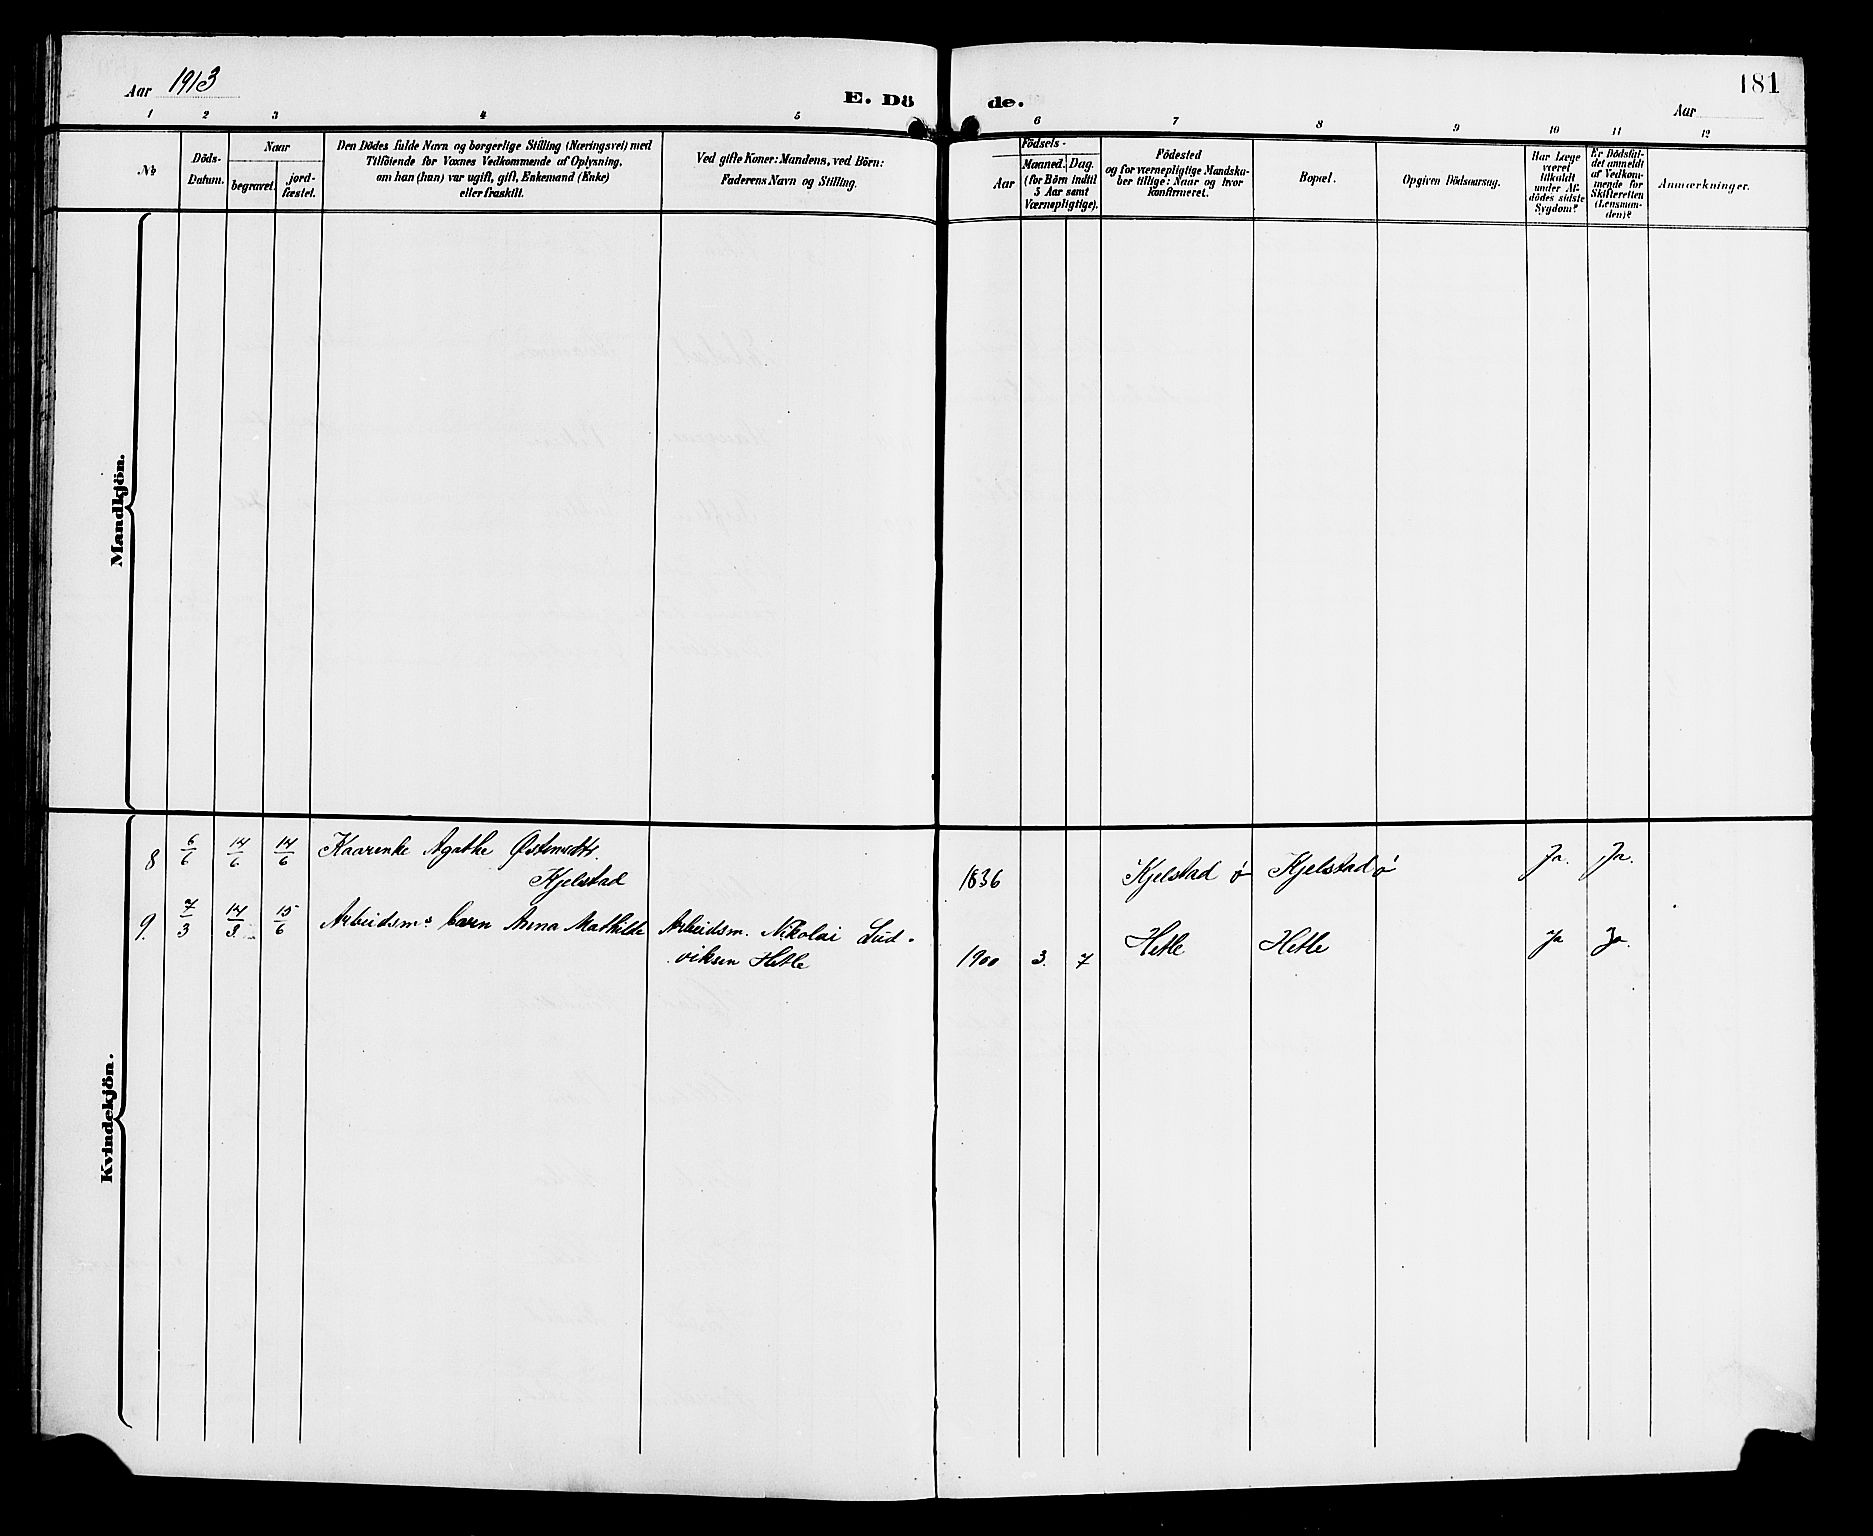 Aar 1913
E. Döde.
181
Aar
1 2 3 4 5 6 7 8 9 10 11 12
No
Döds-Datum.
Naar
begravet.
jord-fæstet.
Den Dödes fulde Navn og borgerlige Stilling (Næringsvei) med
Tilföiende for Voxnes Vedkommende af Oplysning,
om han (hun) var ugift, gift, Enkemand (Enke)
eller fraskilt.
Ved gifte Koner: Mandens, ved Börn:
Faderens Navn og Stilling.
Födsels-
Aar
Maaned. Dag.
(for Börn indtil
5 Aar samt
Værnepligtige).
Födested
og for værnepligtige Mandska-
ber tillige: Naar og hvor
konfirmeret.
Bopæl.
Opgiven Dödsaarsag.
Har Læge
været
tilkaldt
under Af-
dödes sidste
Sygdom?
Er Dödsfal-
det anmeldt
af Vedkom-
mende for
Skifteretten
(Lensman-
den)?
Anmærkninger.
Mandkjön.
Kvindekjön.
8 6/6 14/6 14/6 Kaarenke Agathe
Kjelstad 1836 Kjelstad ø Kjelstad ø Ja. Ja.
9. 7/3 14/3 15/6 Arbeidsms barn Anna Mathilde Arbeidsm. Nikolai Lud-
viksen Hetle 1900 3. 7 Hetle Hetle Ja Ja.